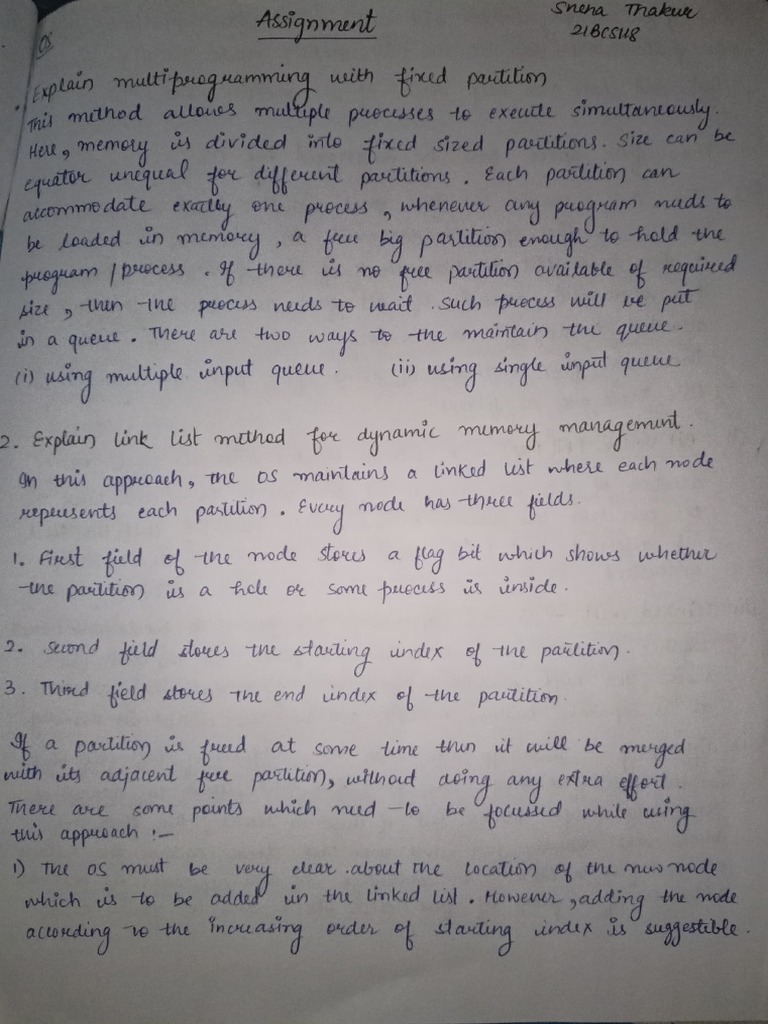 Assignment
Sneha Thakur
21BCS118
OS
Explain multiprogramming with fixed partition
This method allows multiple processes to execute simultaneously.
Here, memory is divided into fixed sized partitions. Size can be
equator unequal for different partitions. Each partition can
accommodate exactly one process, whenever any program needs to
be loaded in memory, a free big partition enough to hold the
program / process. If there is no free partition available of required
size, then the process needs to wait. Such process will be put
in a queue. There are two ways to the maintain the queue.
(i) using multiple input queue. (ii) using single input queue
2. Explain link list method for dynamic memory management.
In this approach, the OS maintains a linked list where each node
represents each partition. Every node has three fields.
1. First field of the node stores a flag bit which shows whether
the partition is a hole or some process is inside.
2. Second field stores the starting index of the partition.
3. Third field stores the end index of the partition.
If a partition is freed at some time then it will be merged
with its adjacent free partition, without doing any extra effort.
There are some points which need to be focussed while using
this approach :-
1) The OS must be very clear about the location of the new node
which is to be added in the linked list. However, adding the node
according to the increasing order of starting index is suggestible.